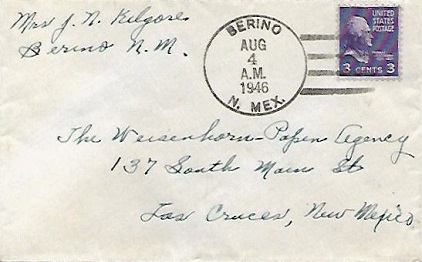 Mrs J. N. Kilgores
Berino N.M.
BERINO
AUG
4
A.M.
1946
N. MEX.
UNITED
STATES
POSTAGE
3 CENTS 3
The Weisenhorn-Papen Agency
137 South Main St
Las Cruces, New Mexico